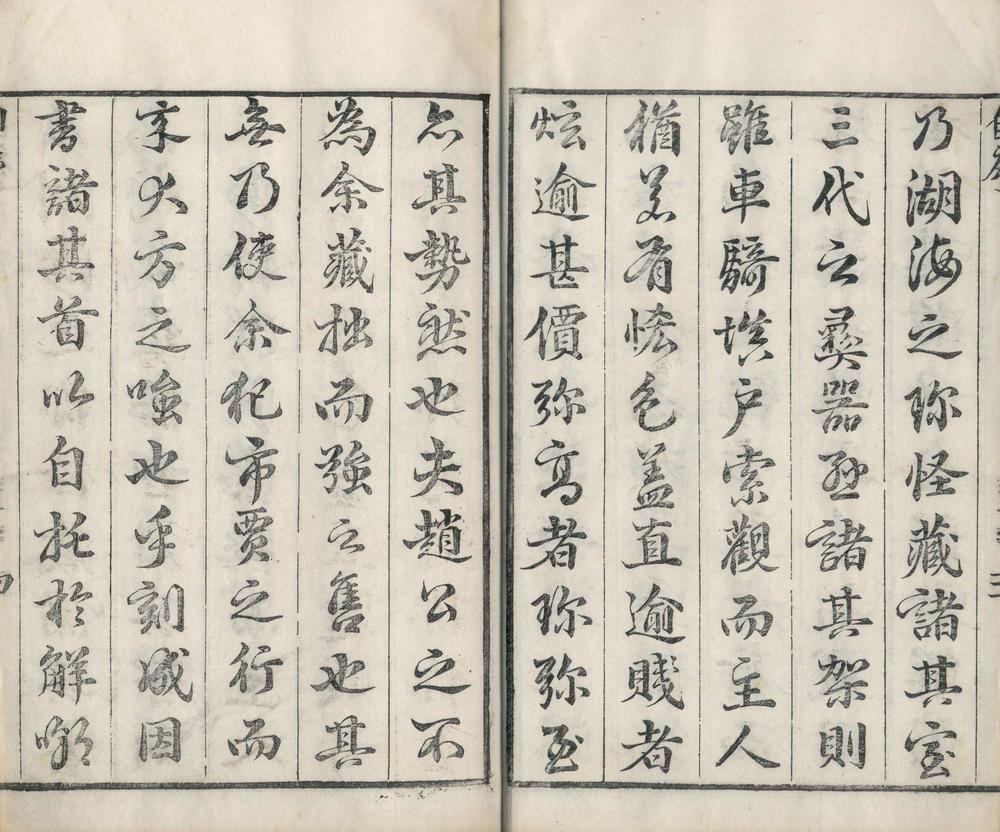 乃湖海之珎怪藏諸其室
三代之彜器歪諸其架則
雖車騎塡户索觀而主人
猶若有悋色盖直逾賤者
炫逾甚價弥高者珎弥至
亦其勢然也夫趙公之不
為余藏拙而強之售也其
無乃使余犯市賈之行而
来大方之嗤也乎刻成因
書諸其首以自托於解嘲